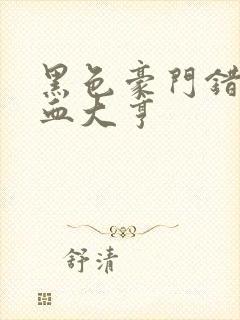 黑色豪門錯
血大亨
舒清